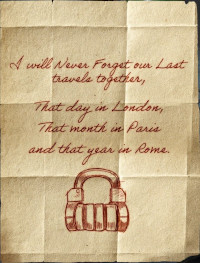 I will Never Forget our Last
travels together,
That day in London,
That month in Paris
and that year in Rome.